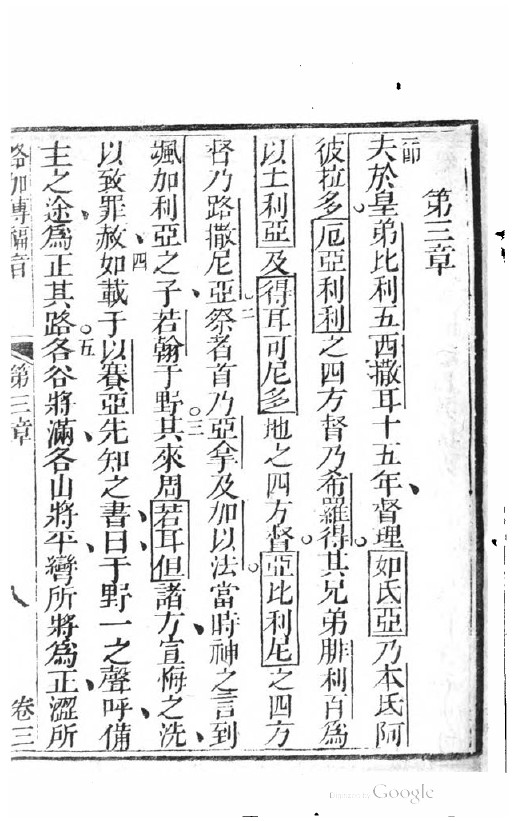 第三章
一節夫於皇弟比利五西撒耳十五年督理如氏亞乃本氏阿
彼拉多厄亞利利之四方督乃希羅得其兄弟腓利百為
以土利亞及得耳可尼多地之四方督亞比利尼之四方
督乃路撒尼亞二祭者首乃亞拿及加以法當時神之言到
颯加利亞之子若翰于野三其來周若耳但諸方宣悔之洗
以致罪赦四如載于以賽亞先知之書曰于野一之聲呼備
主之途為正其路五各谷將滿各山將平彎所將為正澀所
路加傳福音 第三章 卷三
Digitized by Google